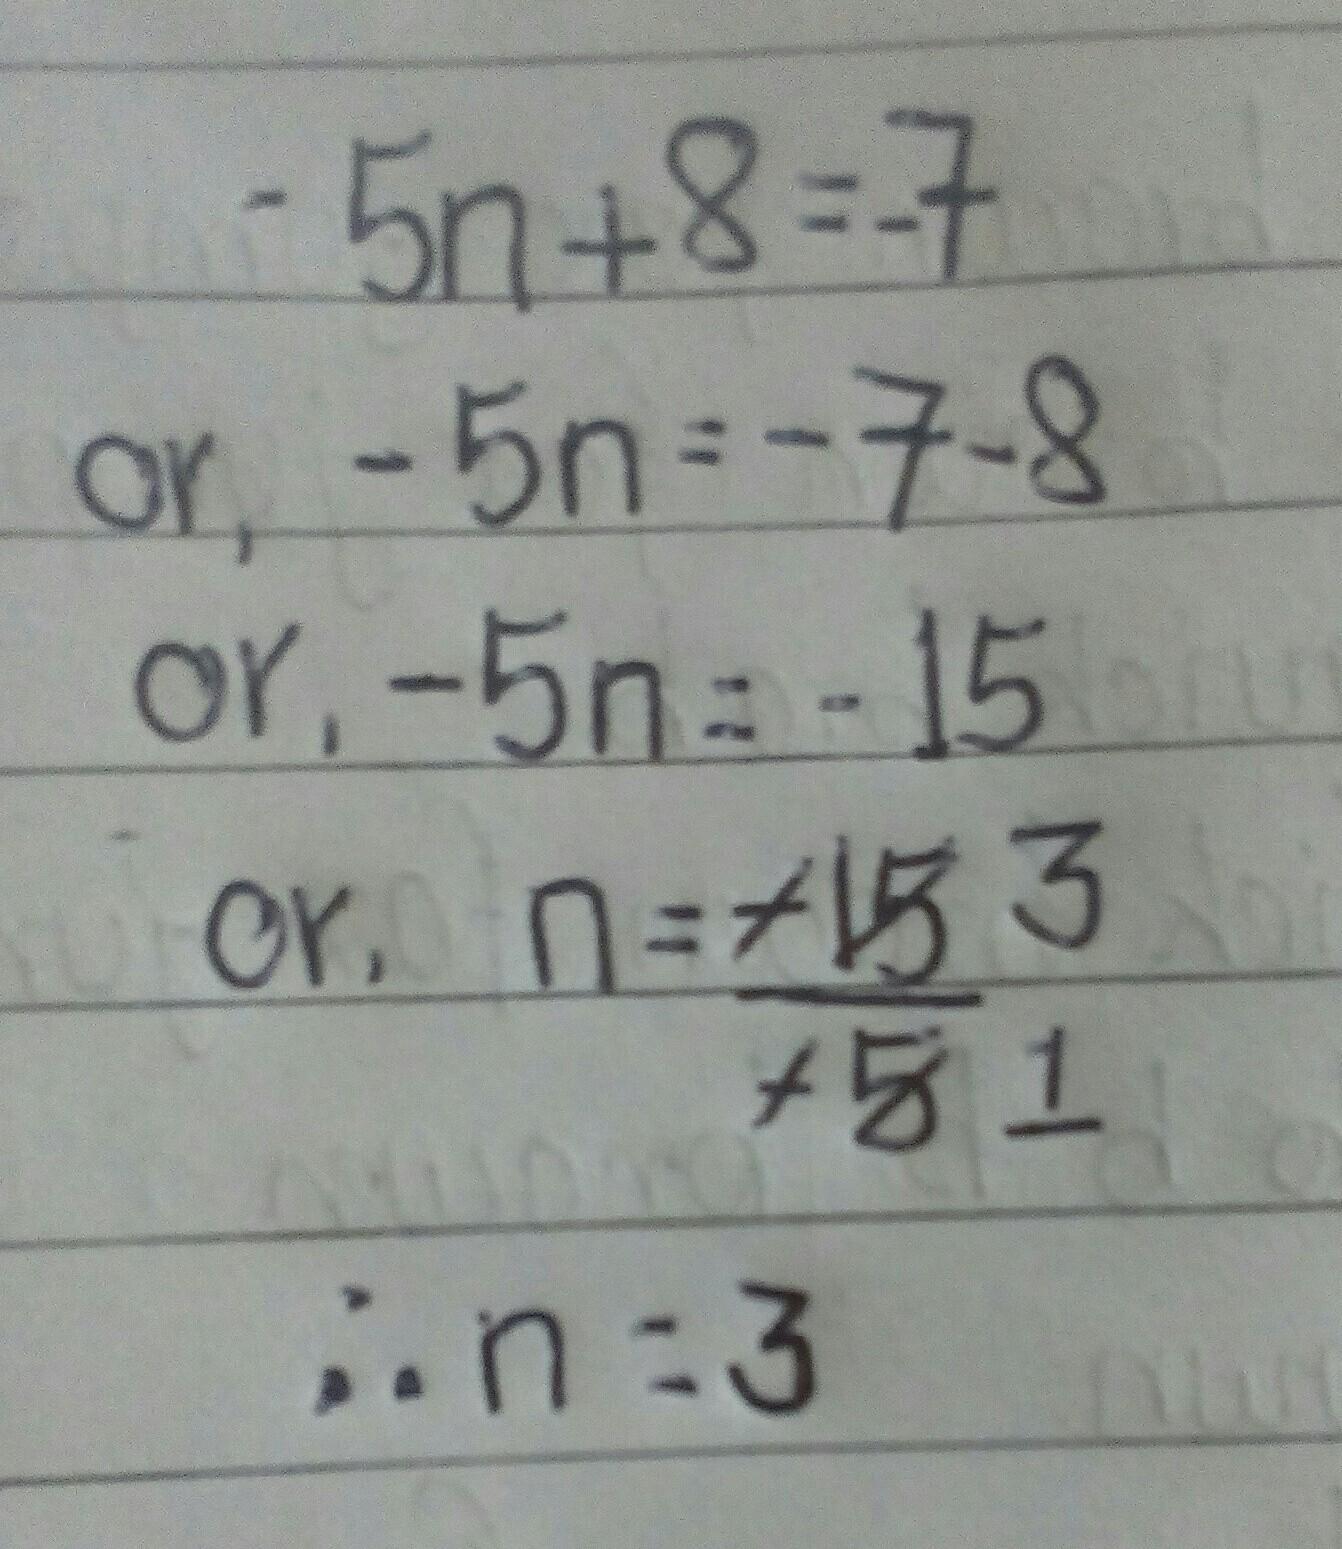 -5n+8=-7
or, -5n=-7-8
or, -5n=-15
or, n=-15 3
-5 1
∴ n=3